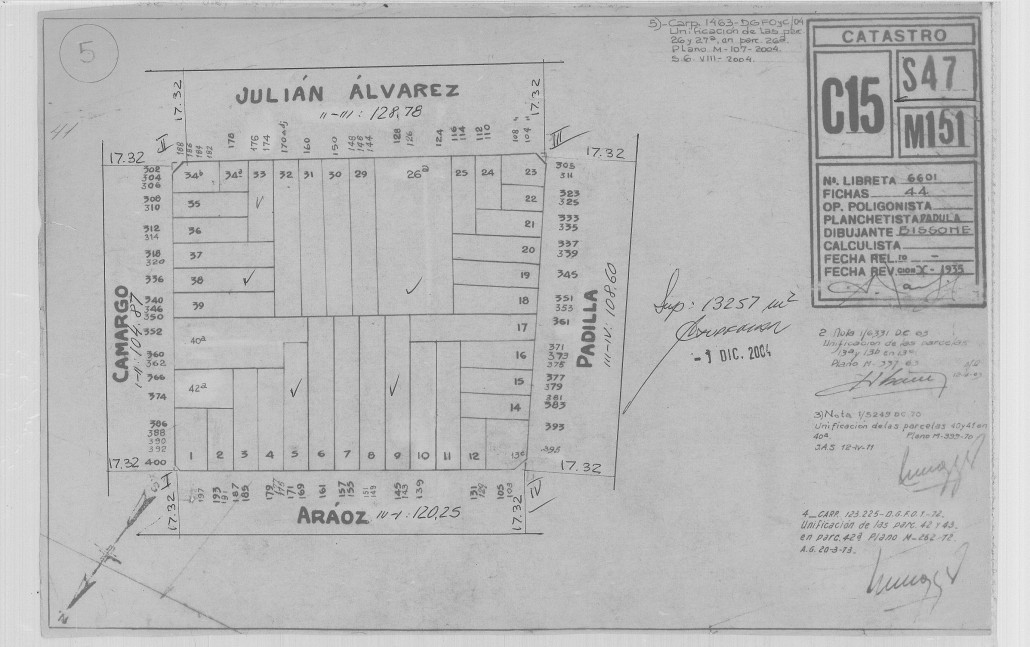 5
5)-Carp. 1463-DGFOyC/04
Unificación de las parc.
26 y 27ª, en parc. 26ª.
Plano M-107-2004.
S.G. VIII-2004.
CATASTRO
C15
S47
M151
Nº. LIBRETA 6601
FICHAS 44
OP. POLIGONISTA
PLANCHETISTA PADULA
DIBUJANTE BISSONE
CALCULISTA
FECHA REL.
FECHA REV. X-1935
41
17.32
JULIÁN ÁLVAREZ
II-III: 128,78
17.32
188 186 184 182 178 176 174 170 adj 160 150 148 146 144 128 126 124 116 114 112 110 108 104
II
III
17.32
17.32
34b 34a 33 32 31 30 29 26a 25 24 23
35
36
37
38
39
40a
42a
22
21
20
19
18
17
16
15
14
1 2 3 4 5 6 7 8 9 10 11 12 13c
302
304
306
308
310
312
314
318
320
336
340
346
350
352
360
362
366
374
386
388
390
392
400
CAMARGO
I-II: 104,87
305
311
323
325
333
335
337
339
345
351
353
361
371
373
375
377
379
381
383
393
395
PADILLA
III-IV: 108,60
17.32
17.32
I
IV
17.32
197 193 191 187 185 179 171 169 161 157 155 151 149 145 143 139 131 129 105 103
17.32
ARÁOZ IV-I: 120,25
N
Sup: 13257 m²
-1 DIC. 2004
Unificación de las parcelas
13ª y 13b en 13c
Plano M-
3) Nota 1/5249 DC 70
Unificación de las parcelas 40 y 41 en
40ª. Plano M-399-70
S.A.S 12-IV-71
4_CARP. 123.225-D.G.F.O.T.-72.
Unificación de las parc. 42 y 43.
en parc. 42ª Plano M-262-72.
A.G. 20-3-73.